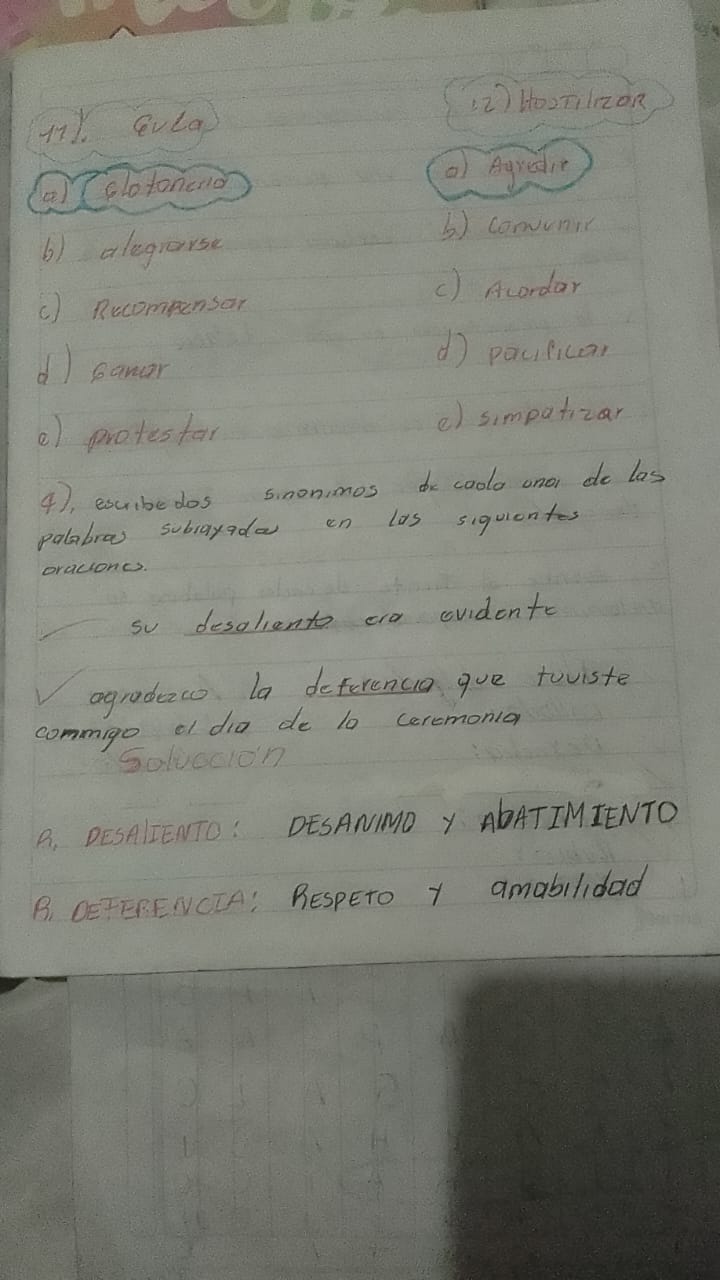 11). Gula
a) Glotoneria
b) alegrarse
c) Recompensar
d) Ganar
e) protestar
12) HOSTILIZAR
a) Agredir
b) convenir
c) Acordar
d) pacificar
e) simpatizar
4), escribe dos sinonimos de cada una de las
palabras subrayadas en las siguientes
oraciones.
su desaliento era evidente
agradezco la deferencia que tuviste
commigo el dia de la ceremonia
Soluccion
R. DESALIENTO: DESANIMO Y AbATIMIENTO
R. DEFERENCIA: RESPETO Y amabilidad